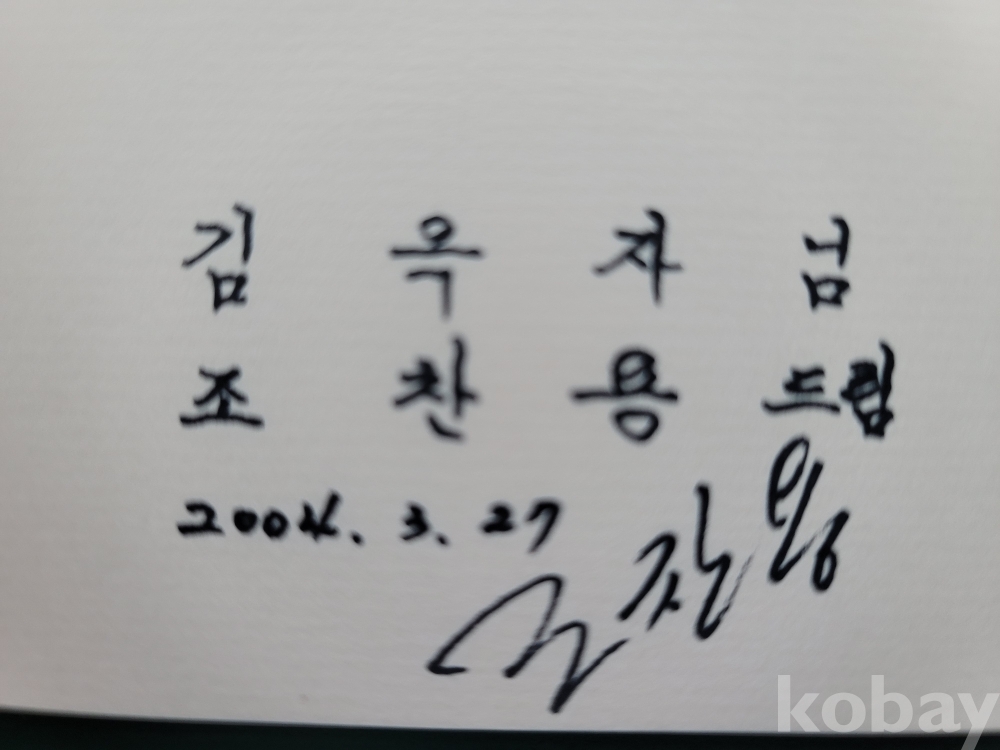 김 옥 자 님
조 찬 용 드림
2004. 3. 27
조찬용
kobay